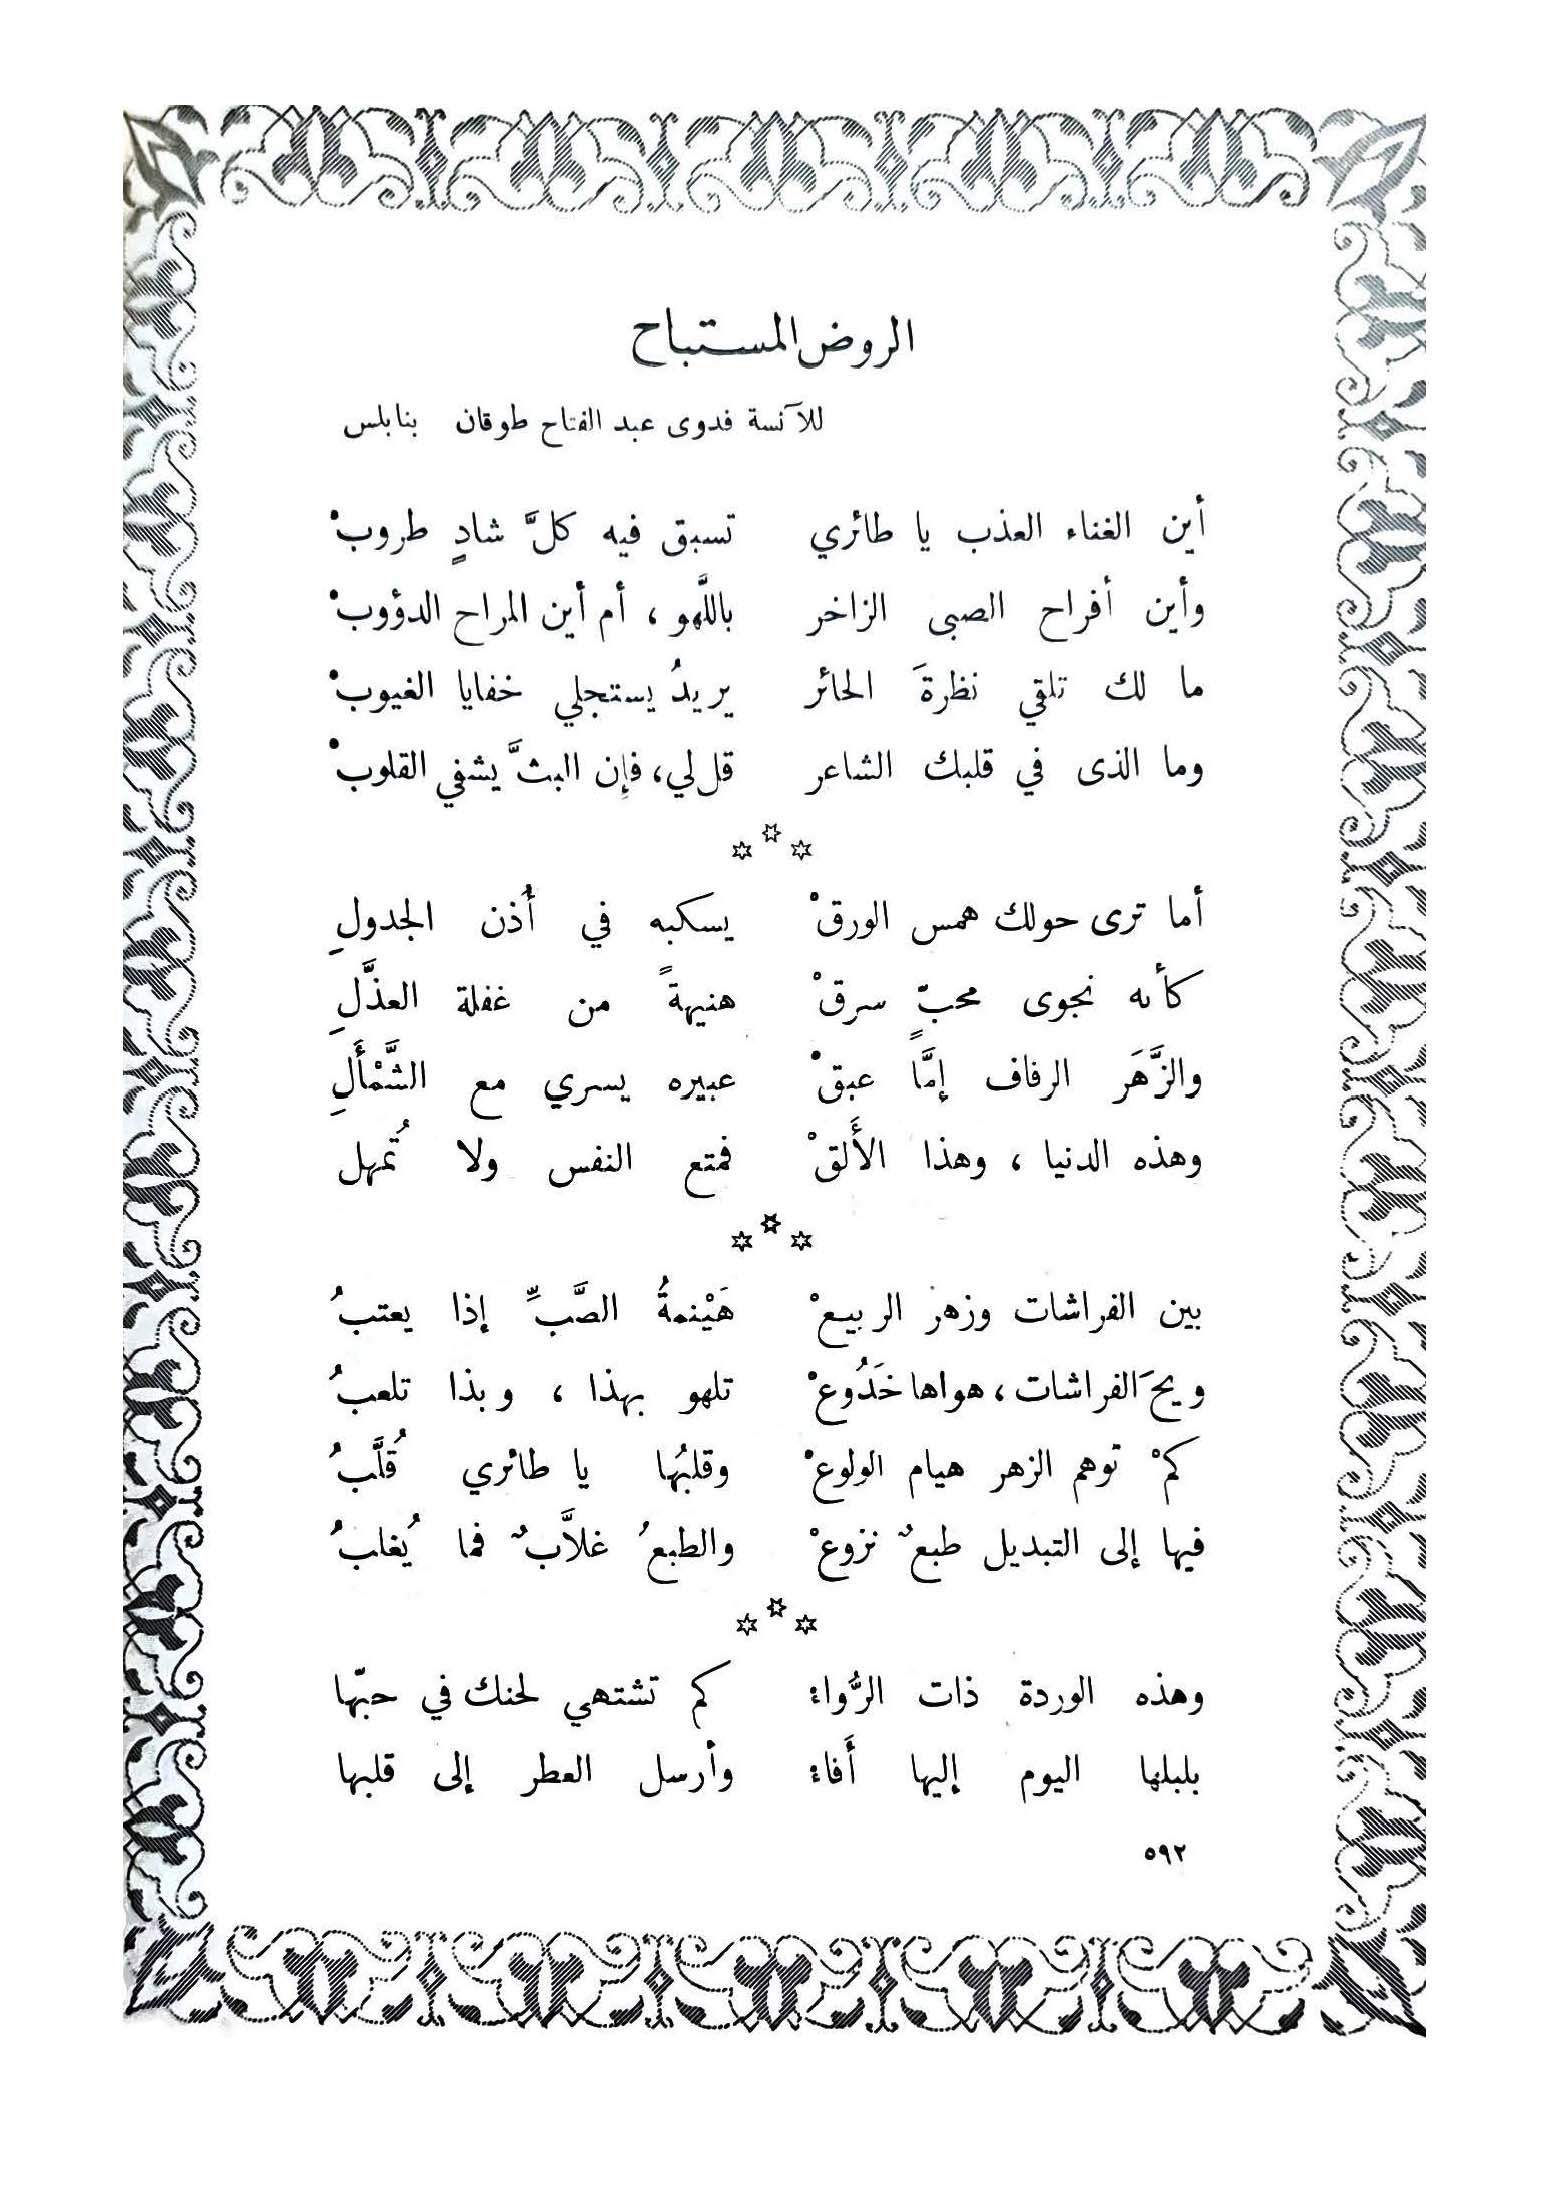 الروض المستباح
للآنسة فدوى عبد الفتاح طوقان بنابلس
أين الغناء العذب يا طائري تسبق فيه كلَّ شادٍ طروبْ
وأين أفراح الصبى الزاخر باللَّهو ، أم أين المراح الدؤوبْ
ما لك تلقي نظرةَ الحائر يريدُ يستجلي خفايا الغيوبْ
وما الذى في قلبك الشاعر قل لي، فإن البثَّ يشفي القلوبْ
أما ترى حولك همس الورقْ يسكبه في أُذن الجدولِ
كأنه نجوى محبّ سرقْ هنيهةً من غفلة العذَّلِ
والزَّهَر الرفاف إمَّا عبقْ عبيره يسري مع الشَّمْأَلِ
وهذه الدنيا ، وهذا الأَلقْ فمتع النفس ولا تُمهل
بين الفراشات وزهر الربيعْ هَيْنمةُ الصَّبِّ إذا يعتبُ
ويحَ الفراشات ، هواها خَدُوعْ تلهو بهذا ، وبذا تلعبُ
كمْ توهم الزهر هيام الولوعْ وقلبُها يا طائري قُلَّبُ
فيها إلى التبديل طبعٌ نزوعْ والطبعُ غلاَّبٌ فما يُغلبُ
وهذه الوردة ذات الرُّواءْ كم تشتهي لحنك في حبّها
بلبلها اليوم إليها أَفاءْ وأرسل العطر إلى قلبها
٥٩٢